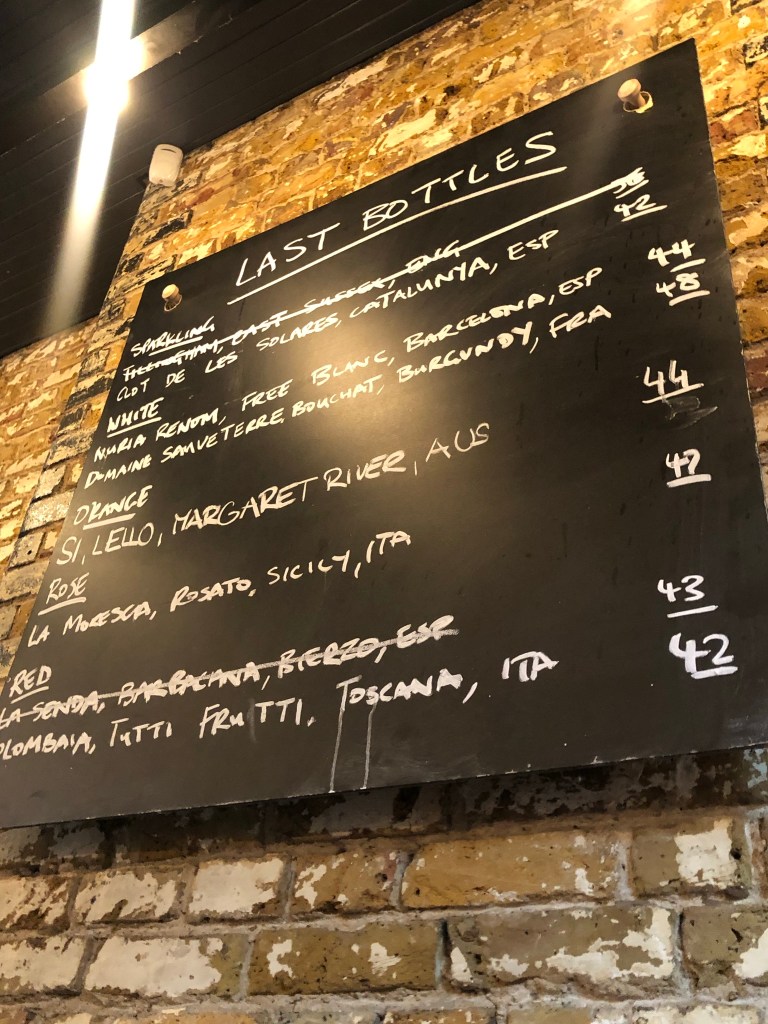 LAST BOTTLES
SPARKLING
EAST SUSSEX, ENG
CLOT DE LES SOLARES, CATALUNYA, ESP 42
WHITE
NURIA RENOM, FREE BLANC, BARCELONA, ESP 44
DOMAINE SAUVETERRE, BOUCHAT, BURGUNDY, FRA 48
ORANGE
SI, LELLO, MARGARET RIVER, AUS 44
ROSE
LA MORESCA, ROSATO, SICILY, ITA 47
RED
LA SENDA, BARBACANA, BIERZO, ESP 43
OLOMBAIA, TUTTI FRUTTI, TOSCANA, ITA 42